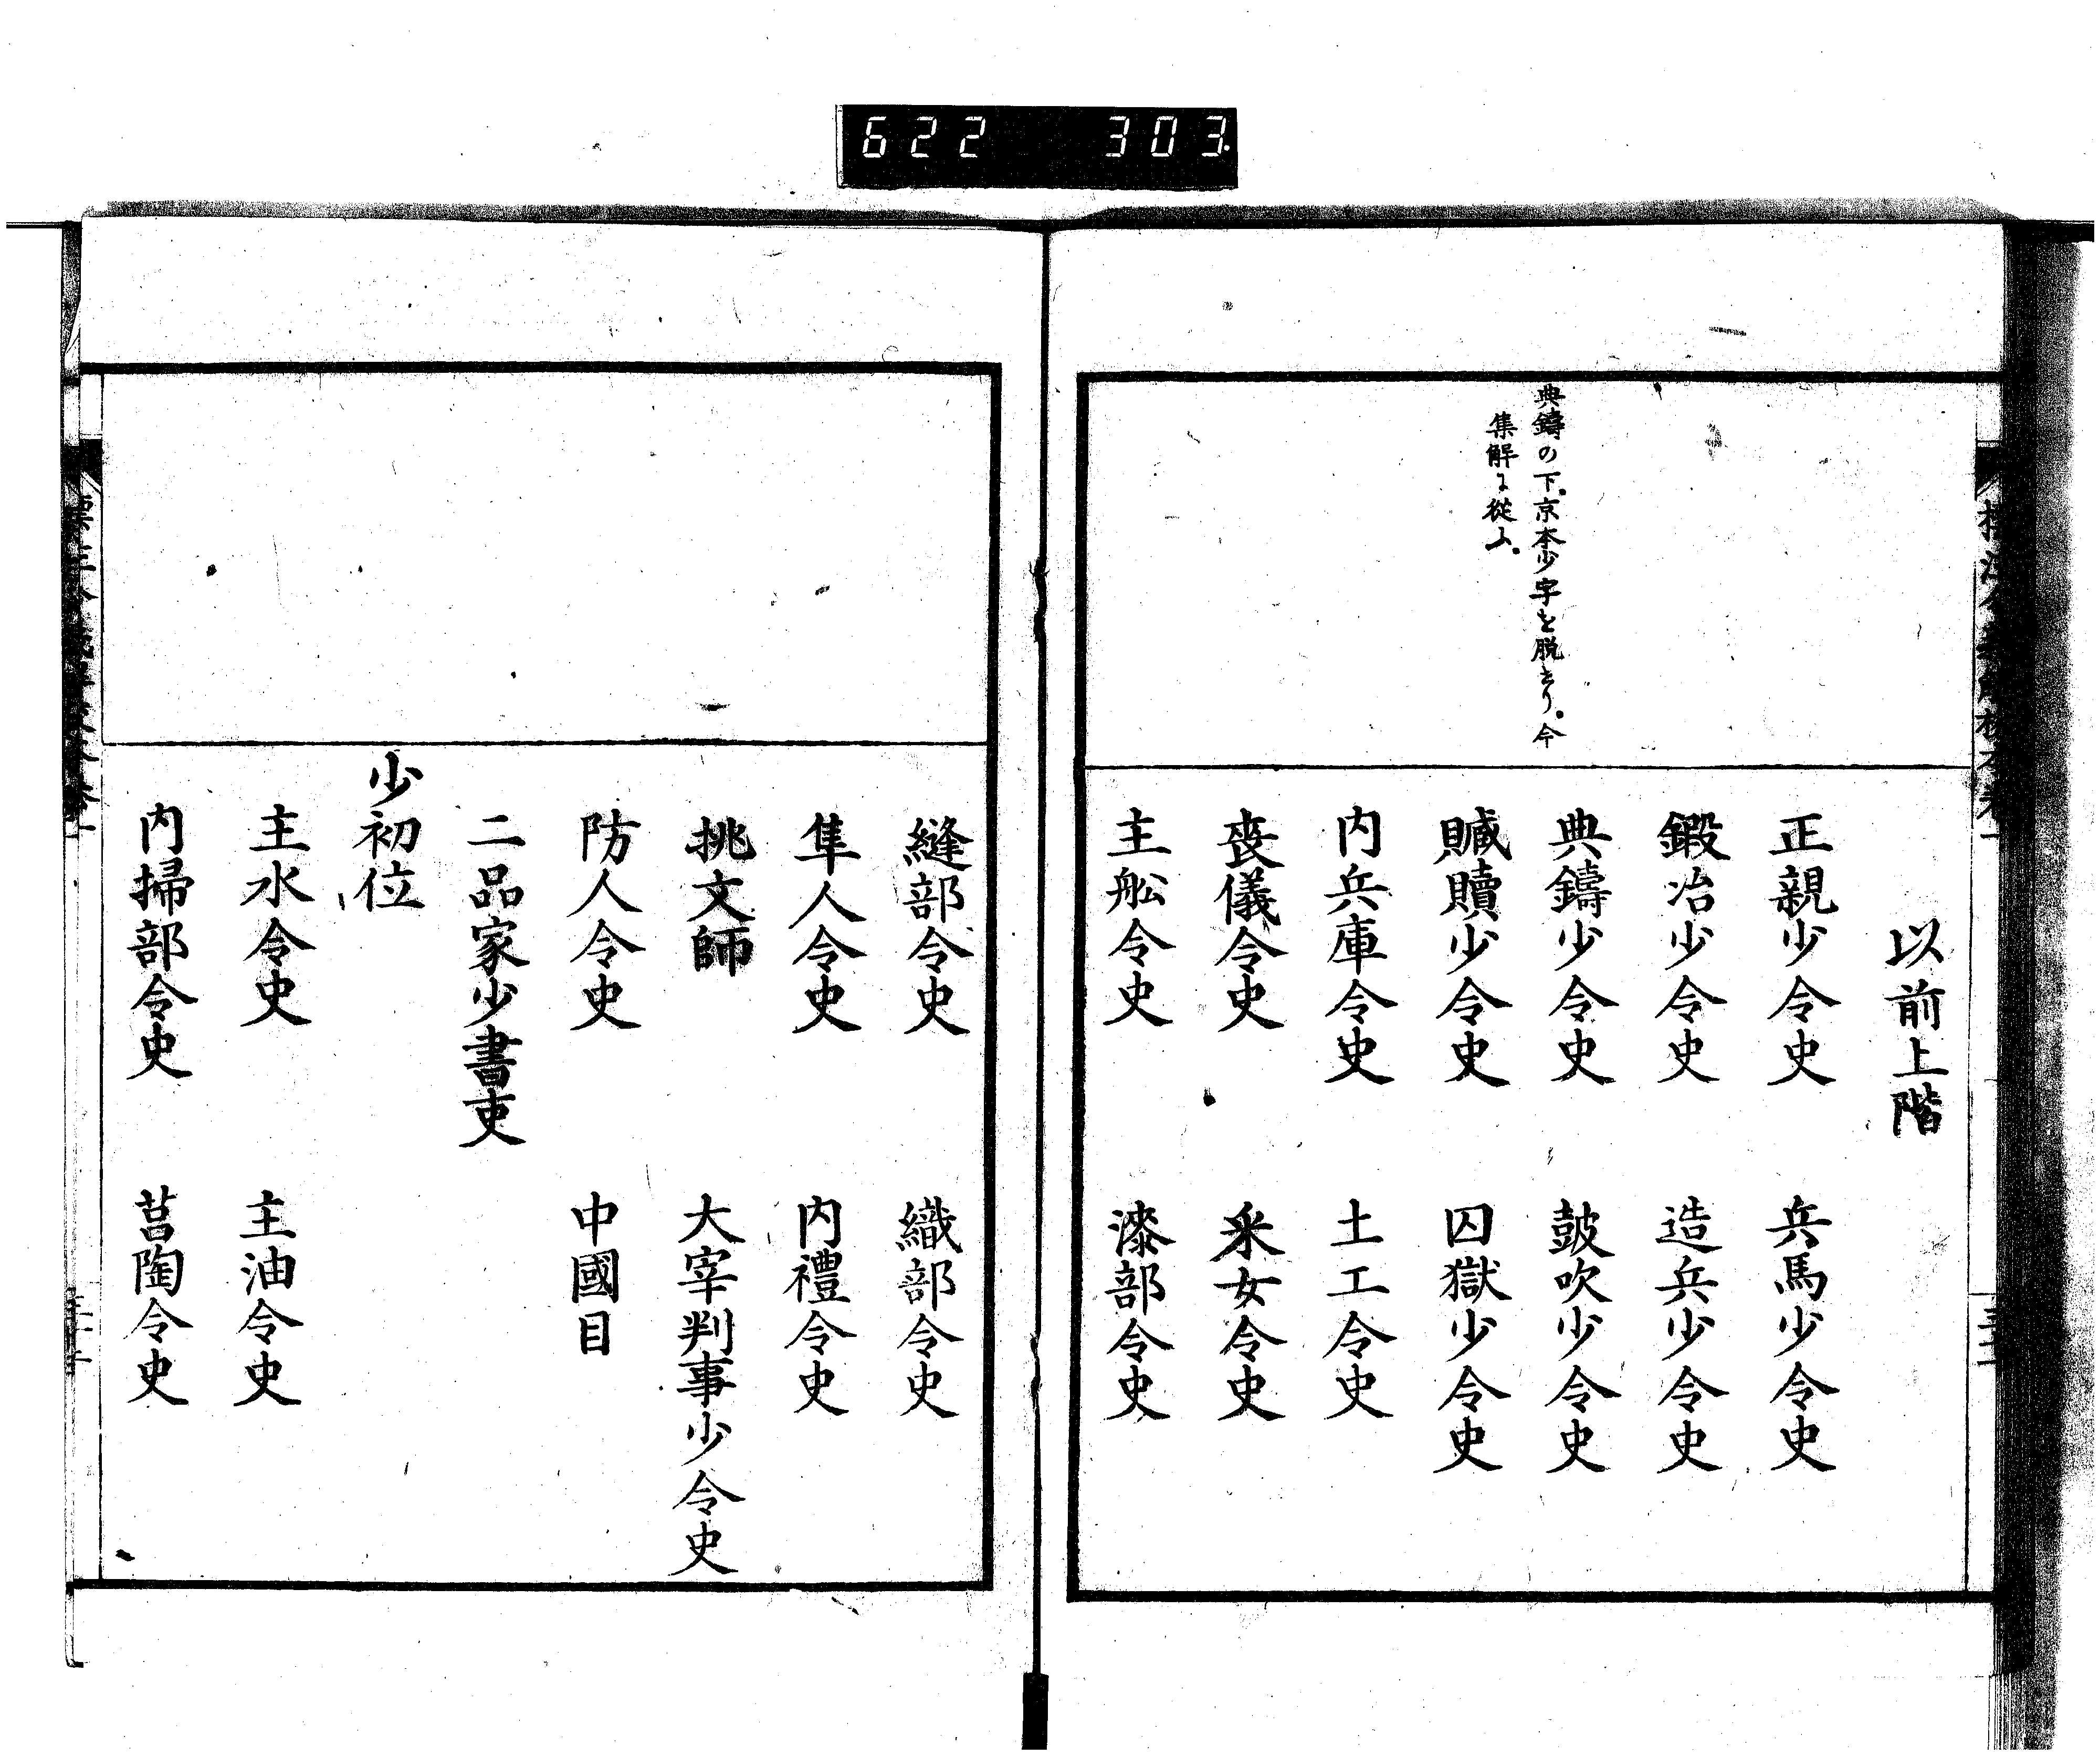 622 303
典鑄の下、京本少字を脱せり。今
集解に從ふ。
以前上階
正親少令史 兵馬少令史
鍛冶少令史 造兵少令史
典鑄少令史 鼓吹少令史
贓贖少令史 囚獄少令史
内兵庫令史 土工令史
喪儀令史 釆女令史
主舩令史 漆部令史
縫部令史 織部令史
隼人令史 内禮令史
挑文師 大宰判事少令史
防人令史 中國目
二品家少書吏
少初位
主水令史 主油令史
内掃部令史 莒陶令史